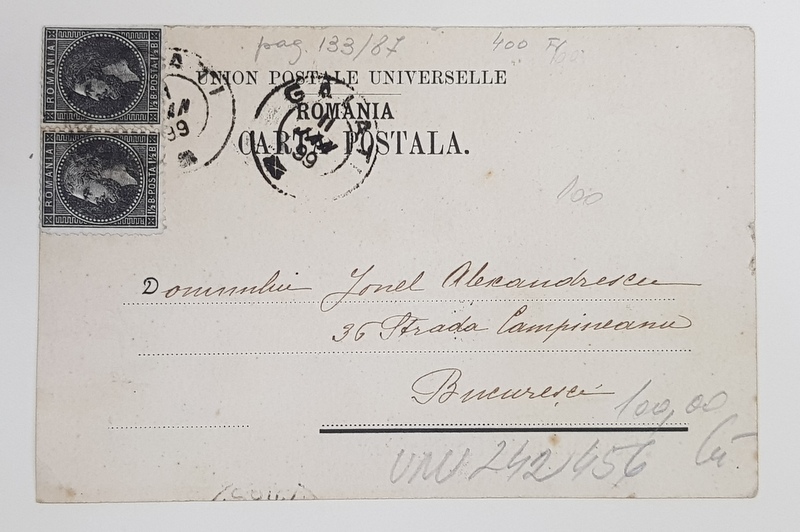 pag. 133/87
400 F
UNION POSTALE UNIVERSELLE
ROMANIA
CARTA POSTALA.
ROMANIA
1½ B. POSTA 1½ B
ROMANIA
1½ B. POSTA 1½ B
GALATI
11 IAN 99
100
Domnului Jonel Alexandrescu
36 Strada Campineanu
Bucuresci
100,00
242456